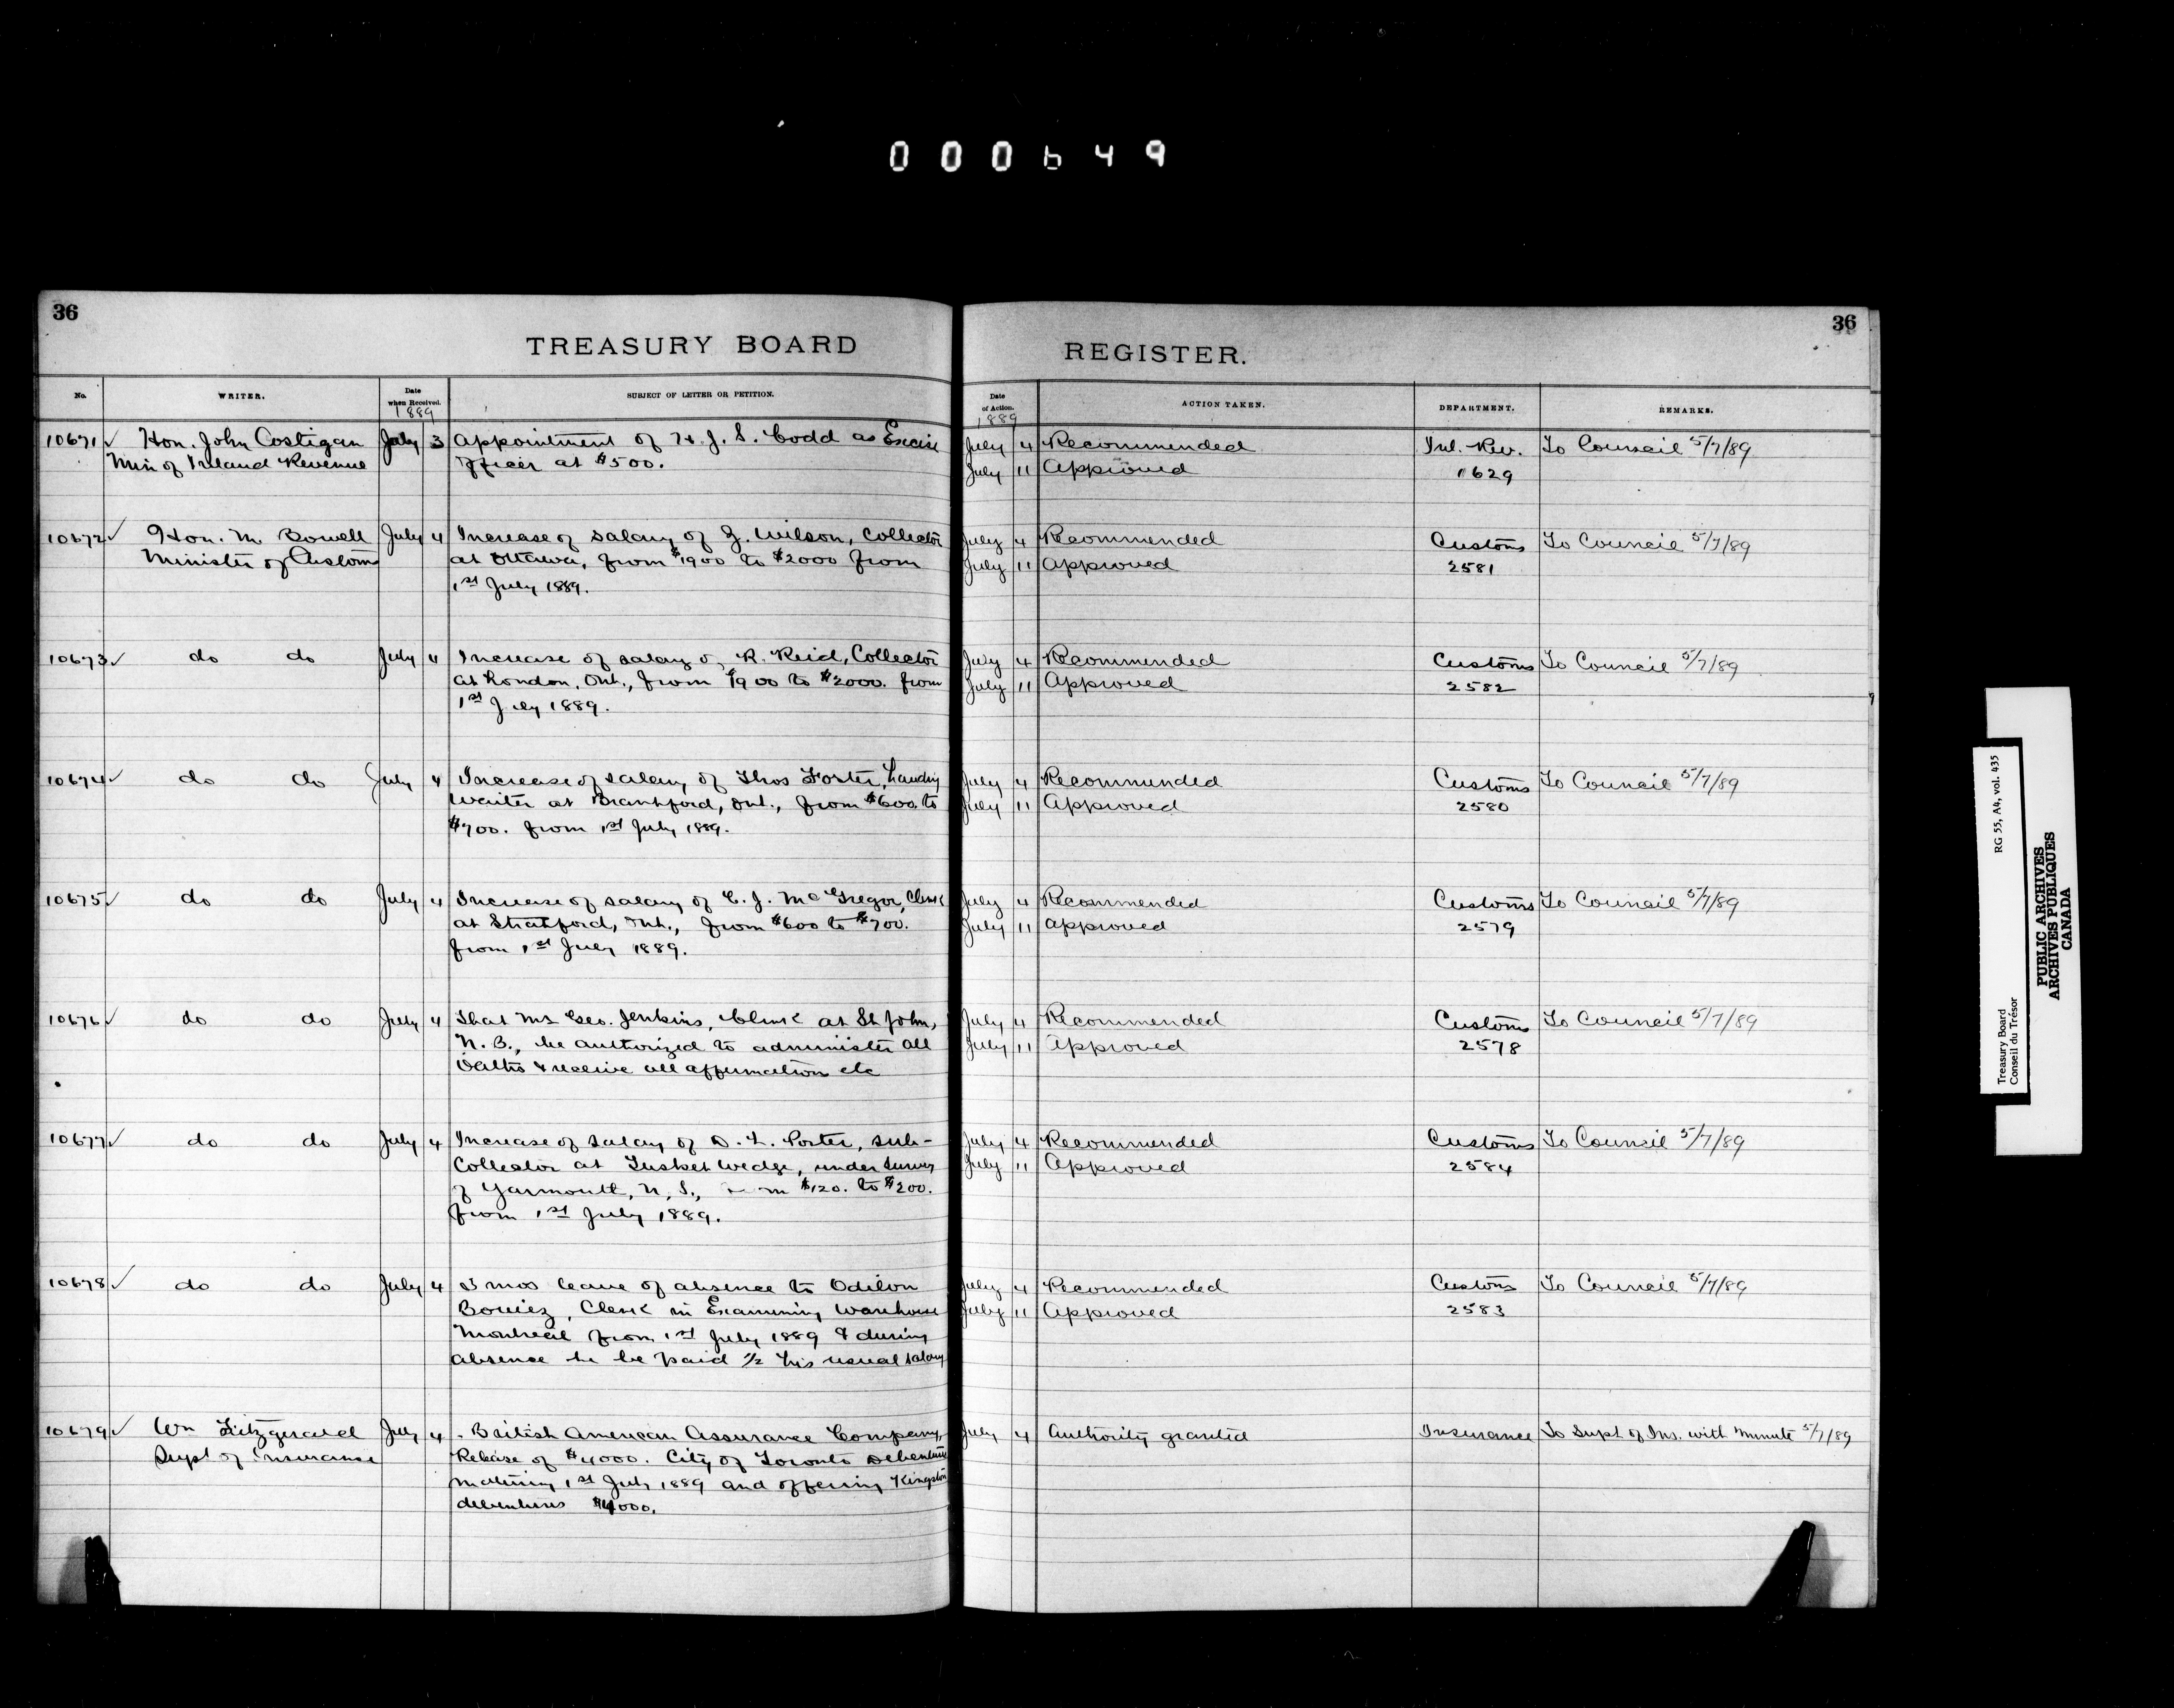 000649
36
TREASURY BOARD
No.
WRITER.
Date when Received.
1889
SUBJECT OF LETTER OR PETITION.
10671 ✓ Hon. John Costigan July 3 Appointment of H. J. S. Codd as Excise
Min of Inland Revenue officer at $500.
10672 ✓ Hon. M. Bowell July 4 Increase of salary of Z. Wilson, Collector
Minister of Customs at Ottawa, from $1900 to $2000 from
1st July 1889.
10673 ✓ do do July 4 Increase of salary of R. Reid, Collector
at London, Ont., from $1900 to $2000. from
1st July 1889.
10674 ✓ do do July 4 Increase of salary of Thos Forster, Landing
Waiter at Brantford, Ont., from $600. to
$700. from 1st July 1889.
10675 ✓ do do July 4 Increase of salary of C. J. McGregor, Clerk
at Stratford, Ont., from $600 to $700.
from 1st July 1889.
10676 ✓ do do July 4 That Mr Geo. Jenkins, Clerk at St John,
N. B., be authorized to administer all
Oaths & receive all affirmation etc
10677 ✓ do do July 4 Increase of salary of D. L. Porter, sub-
Collector at Tusket Wedge, under survey
of Yarmouth, N. S., from $120. to $200.
from 1st July 1889.
10678 ✓ do do July 4 3 mos leave of absence to Odilon
Clerk in Examining Warehouse
Montreal from 1st July 1889 & during
absence he be paid 1/2 his usual salary
10679 ✓ Wm Fitzgerald July 4 British American Assurance Company,
Supt of Insurance Release of $4000. City of Toronto Debenture
maturing 1st July 1889 and offering Kingston
debentures $4000.
36
REGISTER.
Date of Action.
1889
ACTION TAKEN.
DEPARTMENT.
REMARKS.
July 4 Recommended Inl. Rev. To Council 5/7/89
July 11 Approved 1629
July 4 Recommended Customs To Council 5/7/89
July 11 Approved 2581
July 4 Recommended Customs To Council 5/7/89
July 11 Approved 2582
July 4 Recommended Customs To Council 5/7/89
July 11 Approved 2580
July 4 Recommended Customs To Council 5/7/89
July 11 approved 2579
July 4 Recommended Customs To Council 5/7/89
July 11 Approved 2578
July 4 Recommended Customs To Council 5/7/89
July 11 Approved 2584
July 4 Recommended Customs To Council 5/7/89
July 11 Approved 2583
July 4 Authority granted Insurance To Supt of Ins. with minute 5/7/89
Treasury Board RG 55, A4, vol. 435
Conseil du Trésor
PUBLIC ARCHIVES
ARCHIVES PUBLIQUES
CANADA